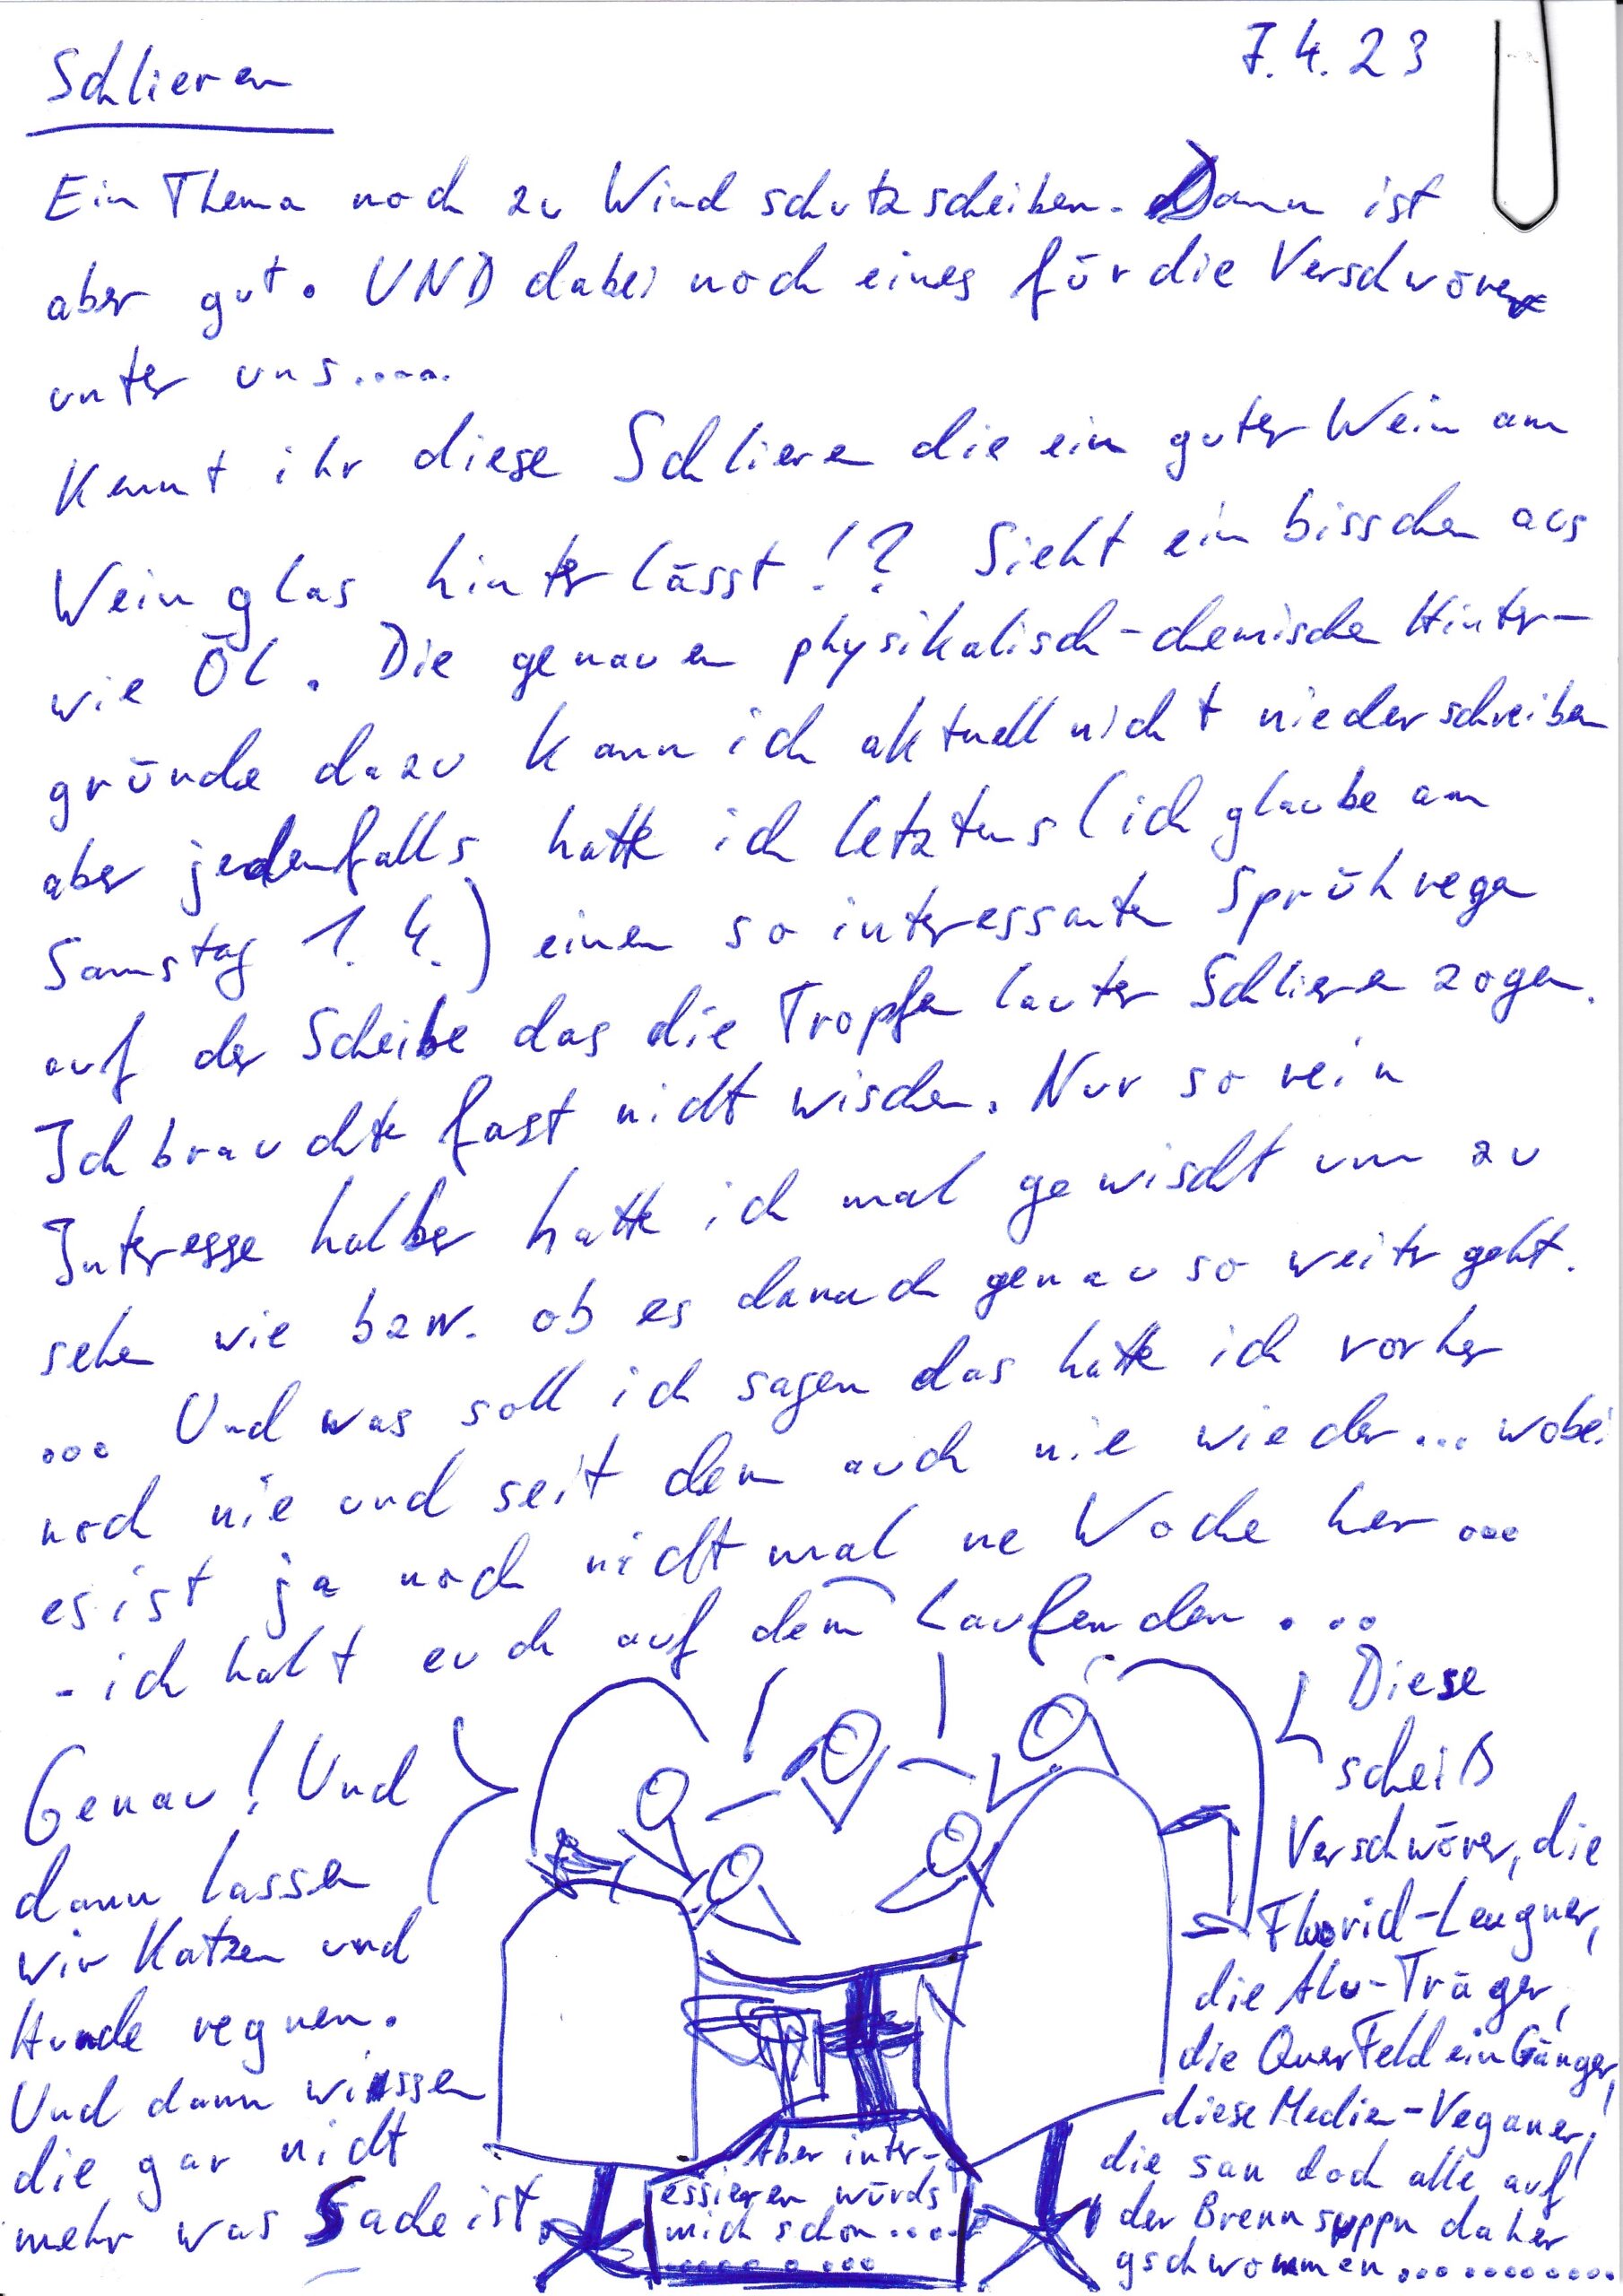 7.4.23
Schlieren
Ein Thema noch zu Windschutzscheiben. Dann ist
aber gut. UND dabei noch eines für die Verschwörer
unter uns.....
Kennt ihr diese Schlieren die ein guter Wein am
Weinglas hinterlässt!? Sieht ein bisschen aus
wie Öl. Die genauen physikalisch-chemischen Hinter-
gründe dazu kann ich aktuell nicht niederschreiben
aber jedenfalls hatte ich letztens (ich glaube am
Samstag 1.4.) einen so interessanten Sprühregen
auf der Scheibe das die Tropfen lauter Schlieren zogen.
Ich brauchte fast nicht wischen. Nur so rein
Interesse halber hatte ich mal gewischt um zu
sehen wie bzw. ob es danach genau so weiter geht.
... Und was soll ich sagen das hatte ich vorher
noch nie und seit dem auch nie wieder... wobei
es ist ja noch nicht mal ne Woche her...
- ich halt euch auf dem Laufenden...
Genau! Und
dann lassen
wir Katzen und
Hunde regnen.
Und dann wissen
die gar nicht
mehr was Sache ist.
Diese
scheiß
Verschwörer, die
Fluorid-Leugner,
die Alu-Träger,
die QuerFeldeinGänger,
diese Medien-Veganer!
die san doch alle auf
der Brennsuppn daher
gschwommen............
Aber inter-
essieren würds
mich schon.....
.........